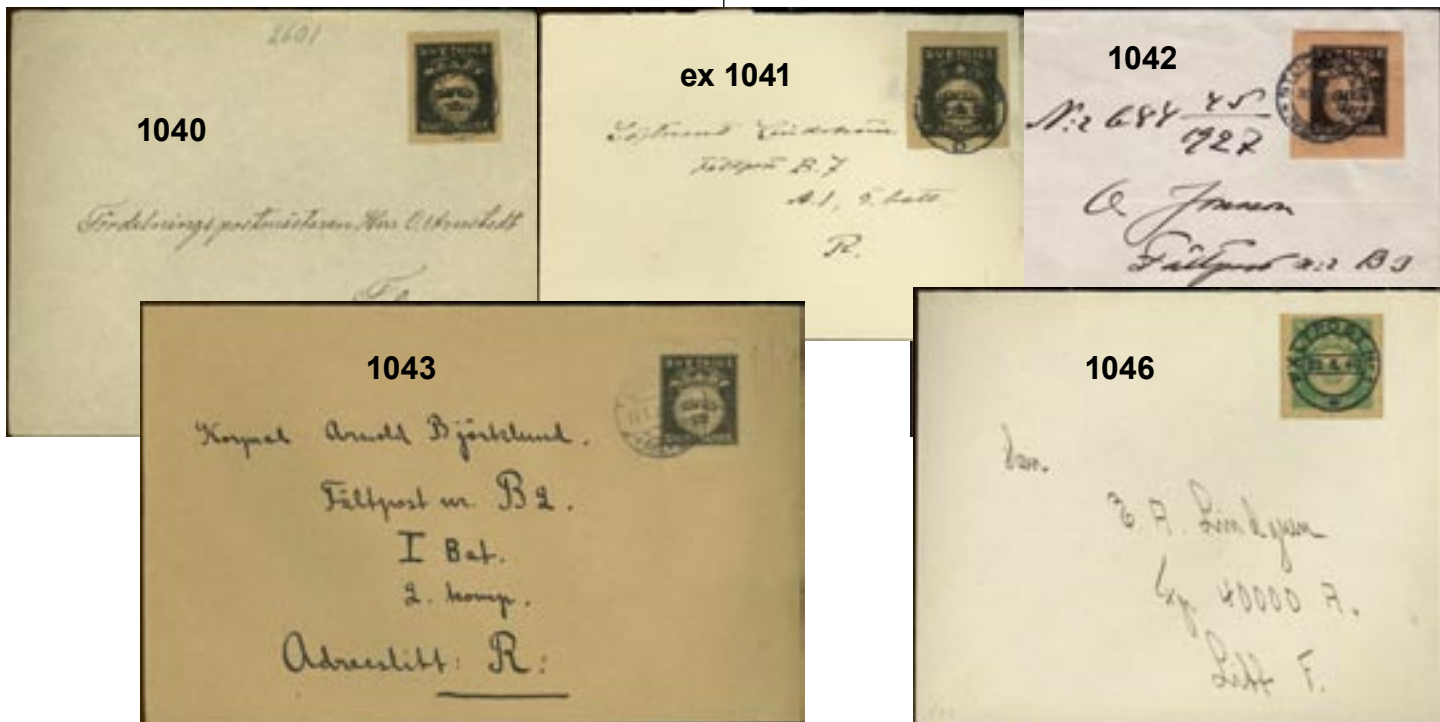 2601
SVERIGE
1040
Fördelningspostmästaren Herr O. Arnstedt
ex 1041
SVERIGE
Löjtnant Lindström
Fältpost B. 7
A.1, 5. batt
R.
1042
SVERIGE
N:r 684 45
1927
O. Jonsson
Fältpost n:r B3
1043
SVERIGE
Korpral Arnold Björklund.
Fältpost nr. B 2.
I Bat.
2. komp.
Adresslitt: R:
1046
FÄLTPOST
E A. Lindgren
Exp. 40000 A.
Litt F.